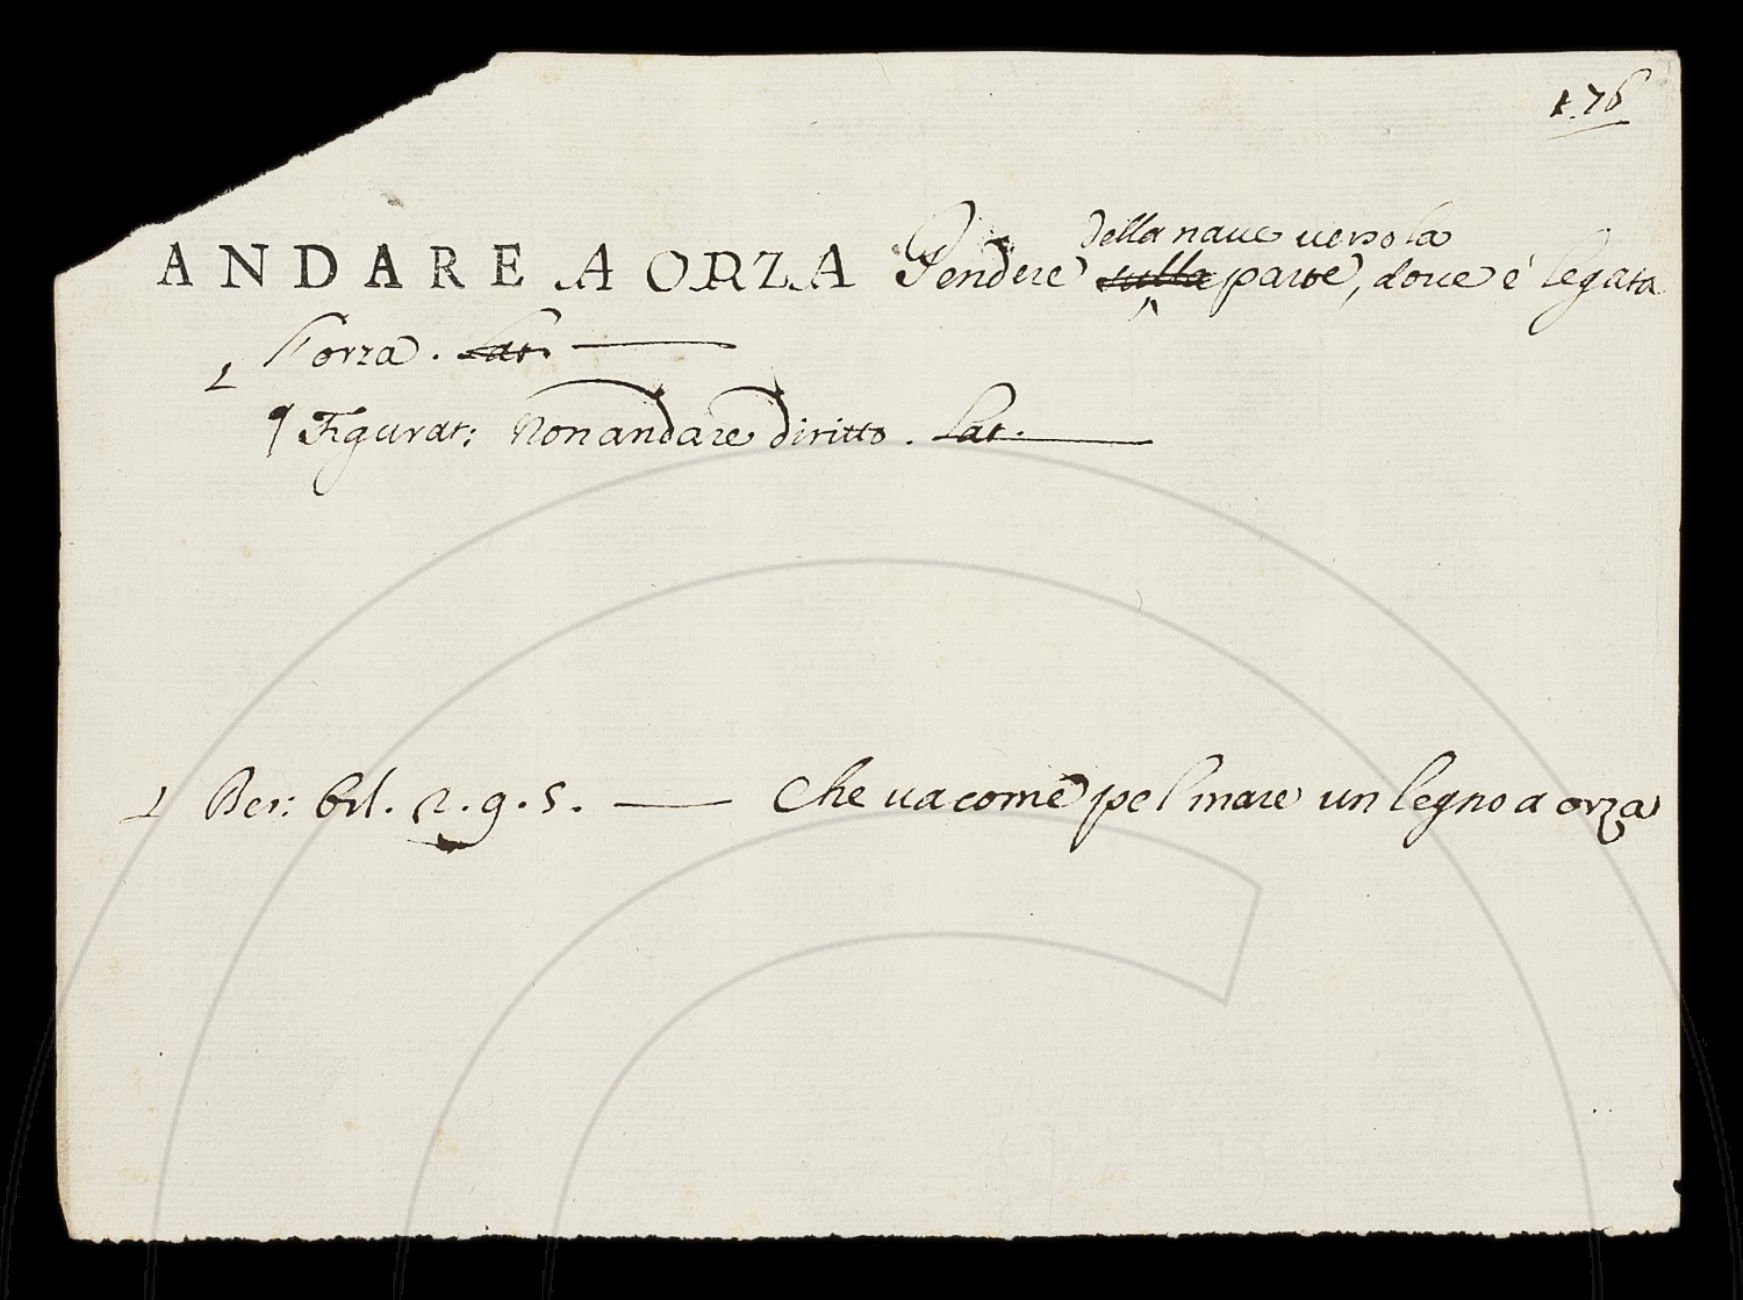 1.76
ANDARE A ORZA Pendere della naue uerso la
sulla parte, doue è legata
l'orza. Lat. ———
¶ Figurat: Non andare diritto. Lat. ———
1 Ber: Orl. 2. 9. 5. ——— Che ua come pel mare un legno a orza